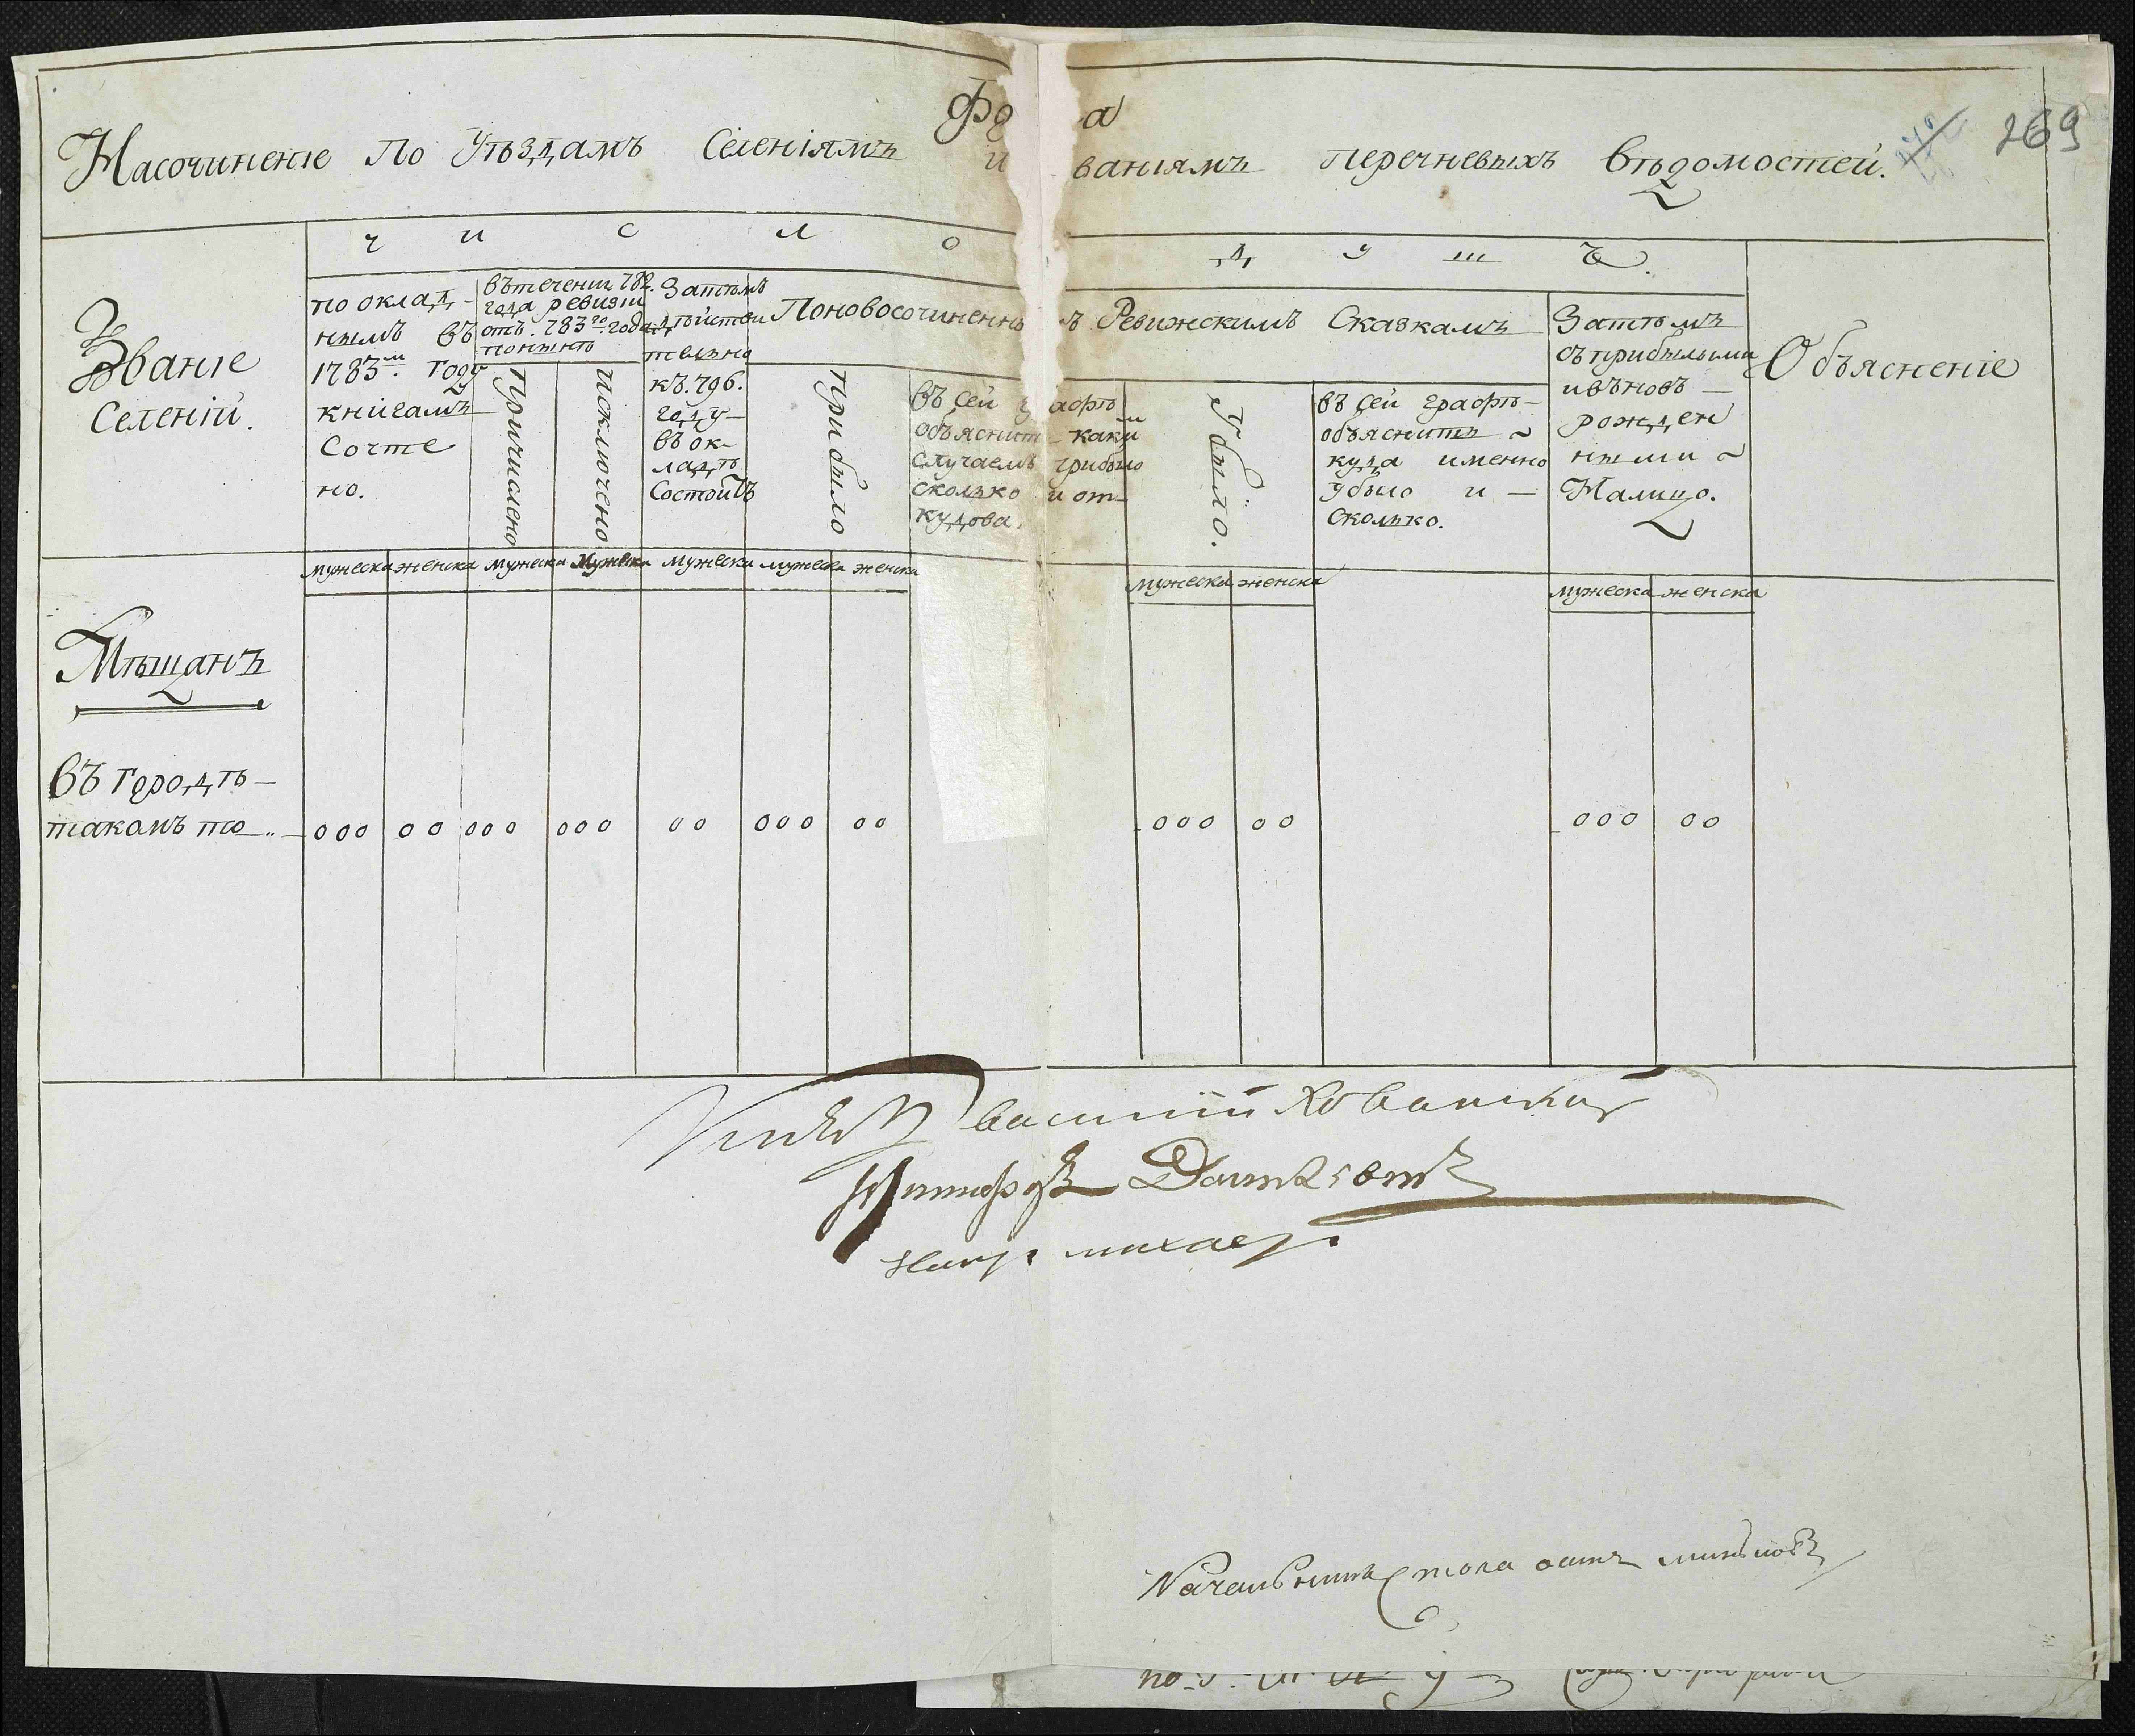 Фо а
269
Насочиненіе По Уѣздамъ Селеніямъ и ваніямъ перечневыхъ вѣдомостей.
ч и с л о д у ш ъ.
Званіе
Селеній.
по оклад-
нымъ въ
1783м. году
книгамъ
Сочте
но.
вътеченіи 782.
года ревизіи
отъ. 783го. года
понынѣ
Причислено
Исключено
Затѣмъ
дѣйстви
тельно
къ. 796.
году-
въ ок-
ладѣ
Состоитъ
Поновосочиненны ъ Ревижскимъ Сказкамъ
Прибыло
въ сей графѣ
объяснит каким
случаемъ прибыло
сколько и от-
кудова.
Убыло.
въ сей графѣ-
объяснить
куда именно
убыло и —
сколько.
Затѣмъ
съприбылыми
ивъновъ —
рожден
ными
Налицо.
Объясненіе
мужеска женска мужеска мужеска мужеска мужеска женска мужеска женска мужеска женска
Мѣщанъ
въ городѣ —
такомъ то .. 000 00 000 000 00 000 00 000 00 000 00
Василій
Начальникъ Стола